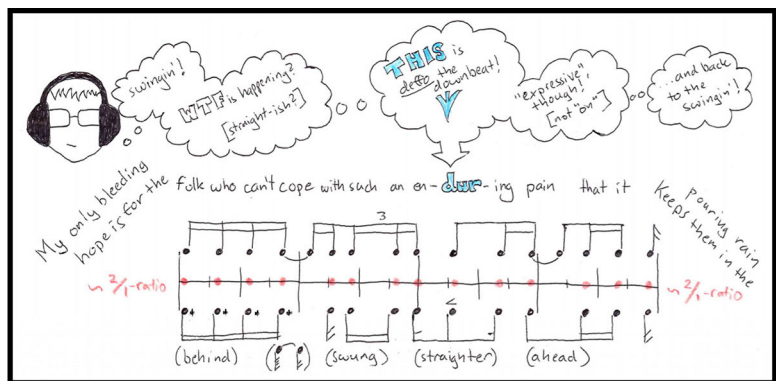 swingin'!
WTF is happening?
[straight-ish?]
THIS is
deffo the
downbeat!
"expressive"
though!
[not "on"]
...and back
to the
swingin'!
My only bleeding
hope is for the
folk who can't cope with such an en-dur-ing pain that it
Keeps them in the
pouring rain
3
~ 2/1-ratio
~ 2/1-ratio
<
(behind)
(swung)
(straighter)
(ahead)